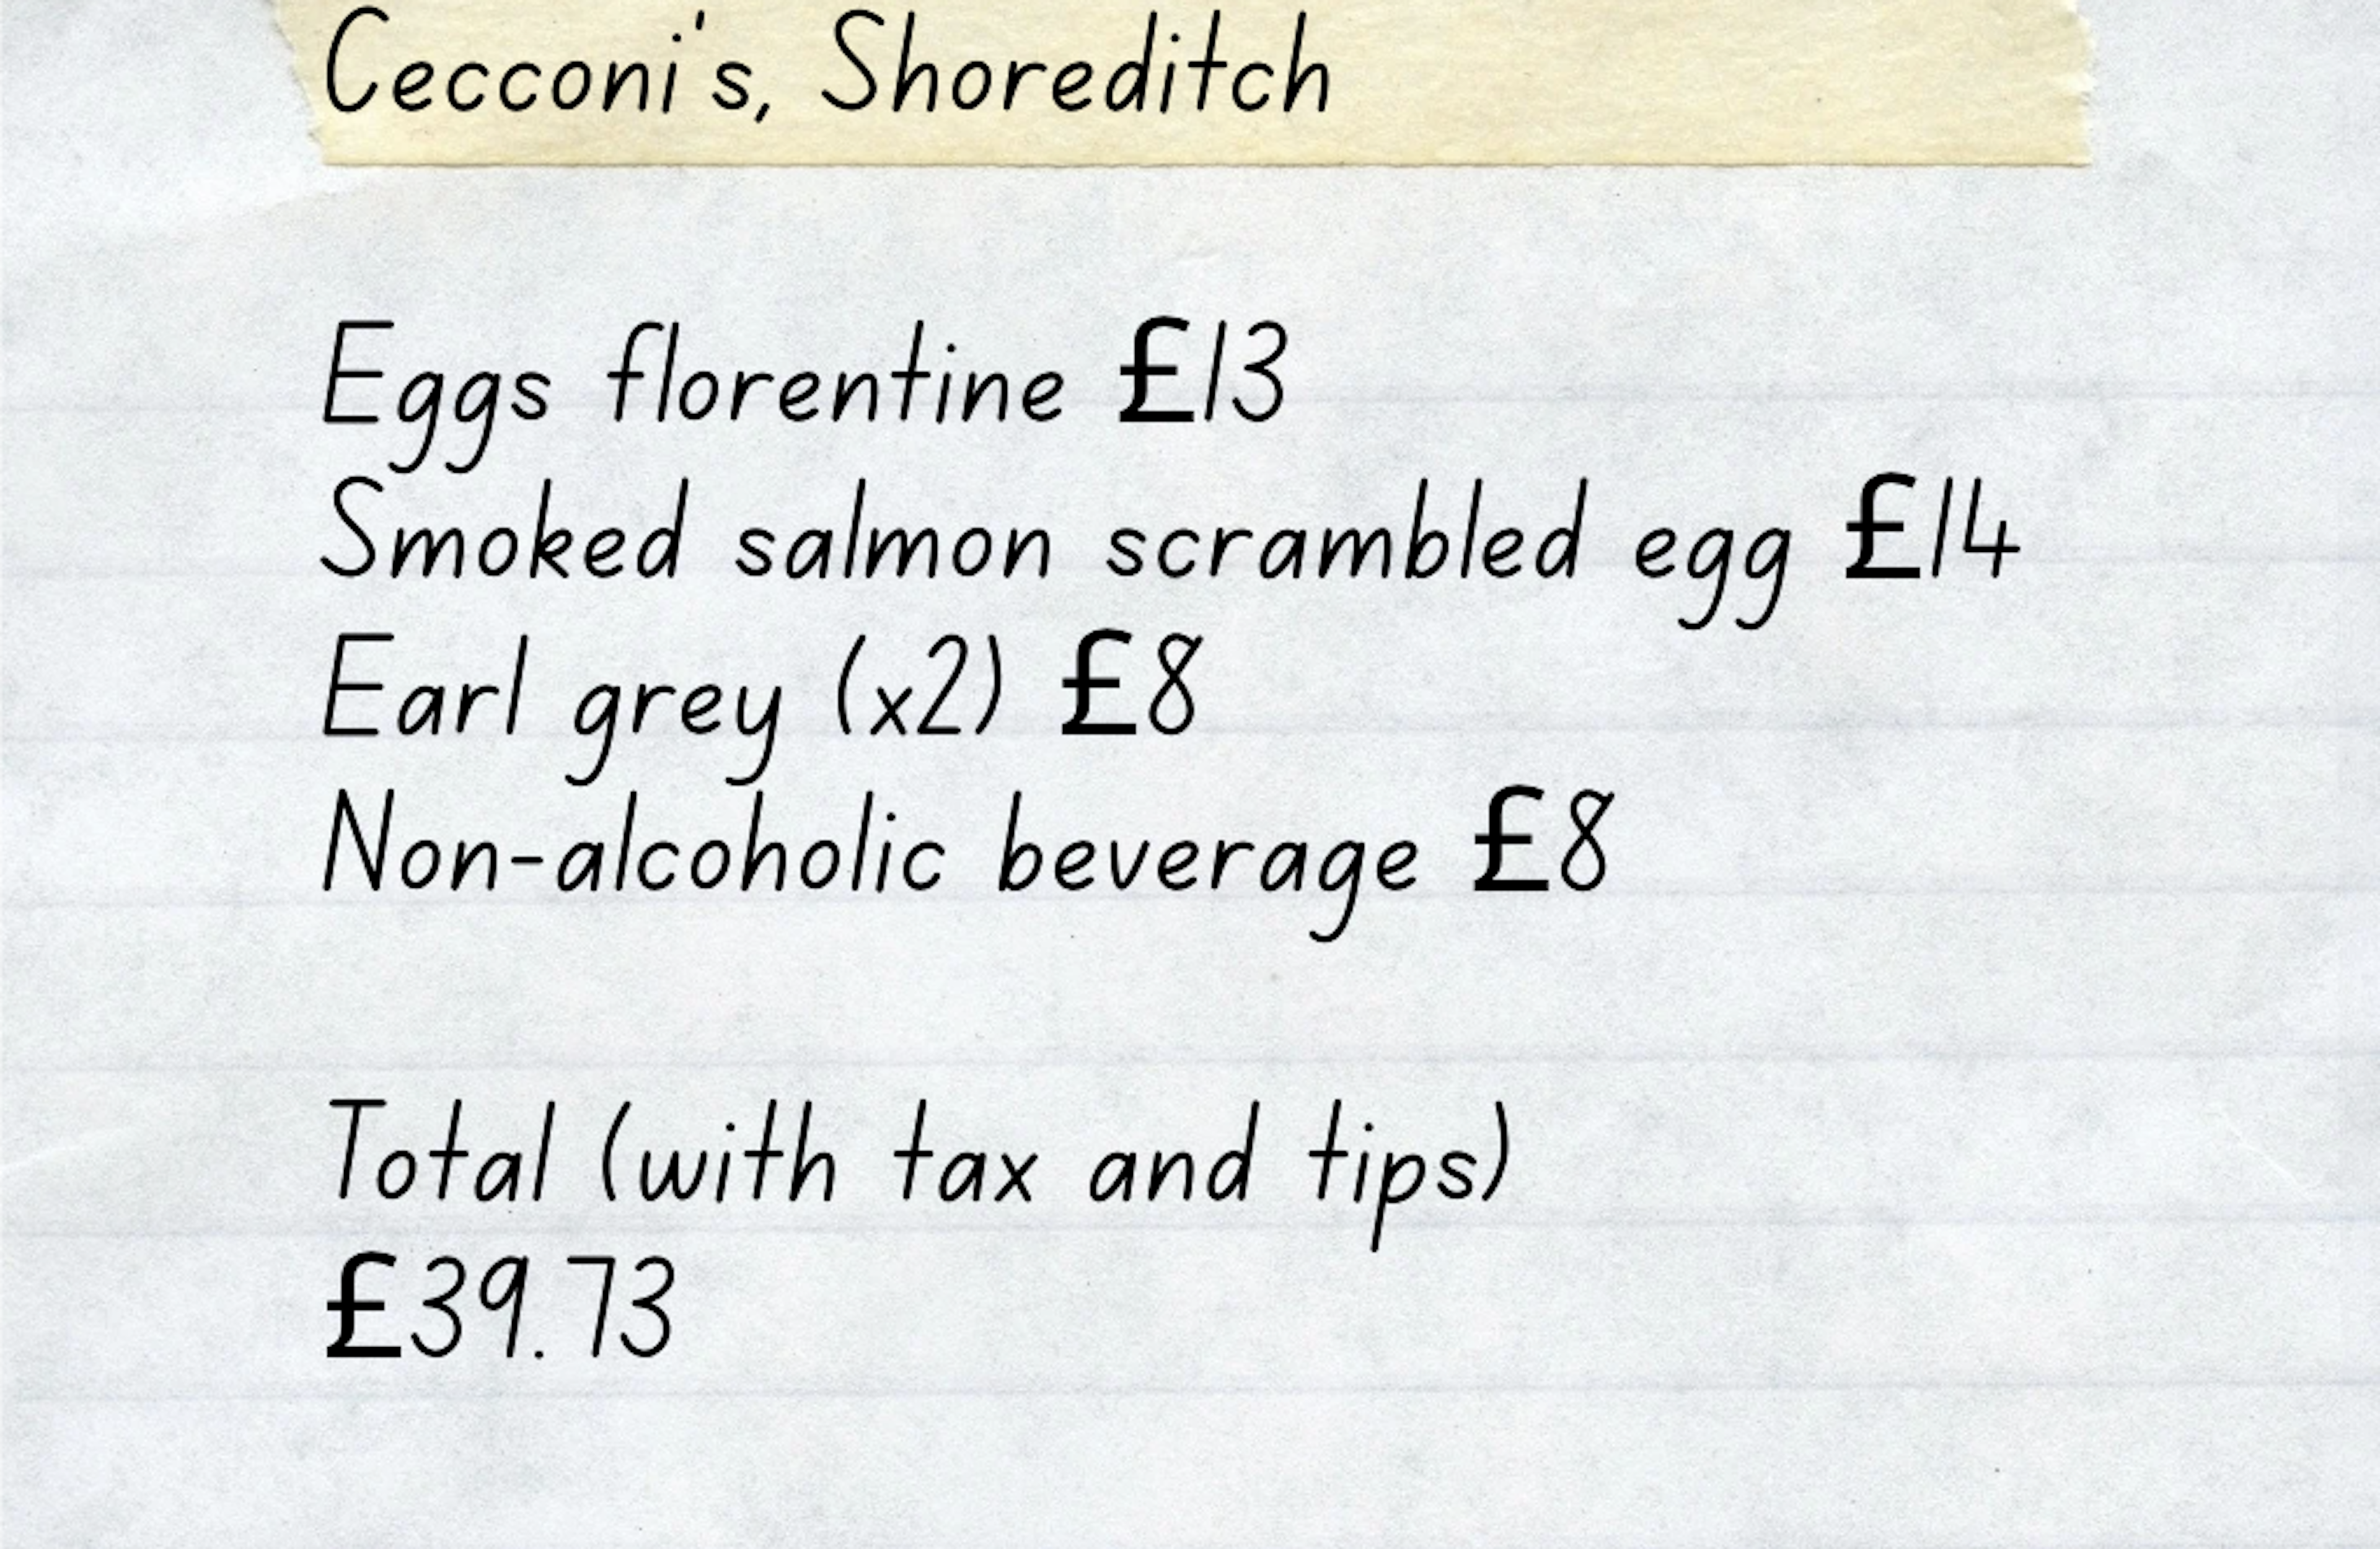 Cecconi's, Shoreditch
Eggs florentine £13
Smoked salmon scrambled egg £14
Earl grey (x2) £8
Non-alcoholic beverage £8
Total (with tax and tips)
£39.73